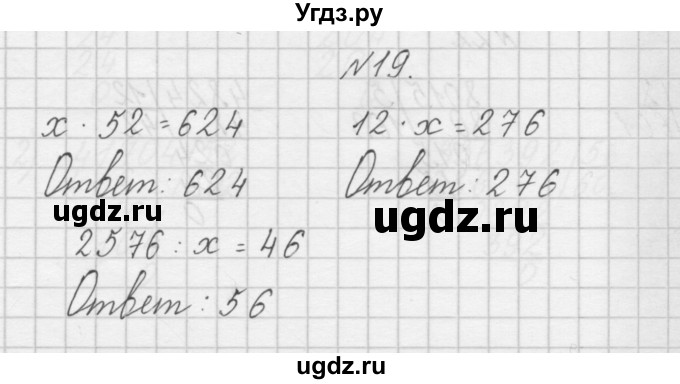 Угдз.ру
№19.
x · 52 = 624
12 · x = 276
Ответ: 624
Ответ: 276
ugdz.ru
ugdz.ru
2576 : x = 46
Ответ: 56
ugdz.ru